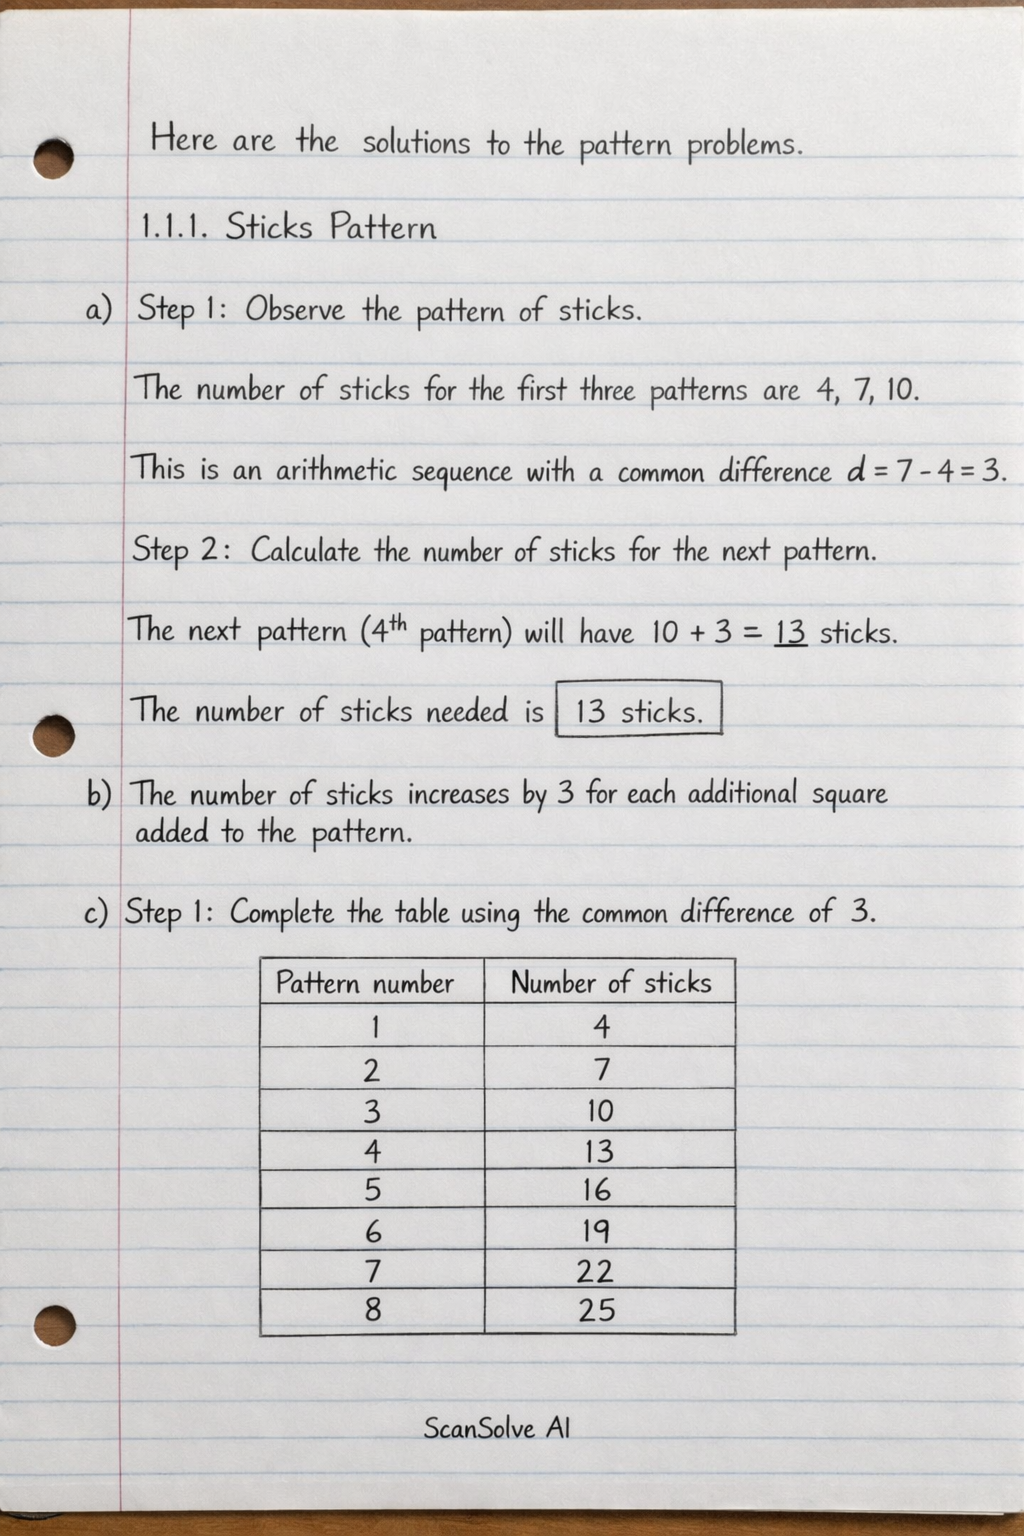 Here are the solutions to the pattern problems.
1.1.1. Sticks Pattern
a) Step 1: Observe the pattern of sticks.
The number of sticks for the first three patterns are 4, 7, 10.
This is an arithmetic sequence with a common difference d = 7 - 4 = 3.
Step 2: Calculate the number of sticks for the next pattern.
The next pattern (4th pattern) will have 10 + 3 = 13 sticks.
The number of sticks needed is 13 sticks.
b) The number of sticks increases by 3 for each additional square
added to the pattern.
c) Step 1: Complete the table using the common difference of 3.
Pattern number Number of sticks
1 4
2 7
3 10
4 13
5 16
6 19
7 22
8 25
ScanSolve AI